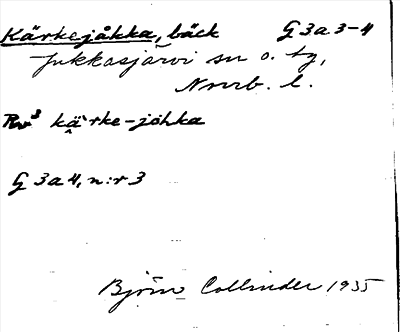 Kärkejåkka, bäck G 3a 3-4
Jukkasjärvi sn o. tg,
Norrb. l.
Rv³ kä̭rke-johka
G 3a 4, n:r 3
Björn Collinder 1935